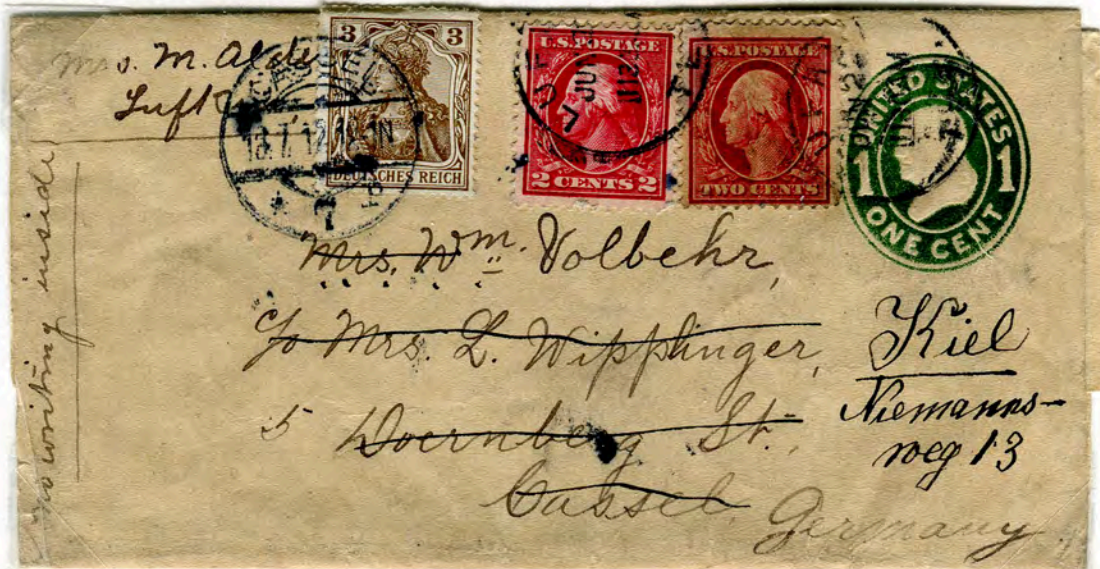 Mrs. M. Alde
Luft
no writing inside
3 3
DEUTSCHES REICH
CASSEL
7
U.S. POSTAGE
2 CENTS 2
U.S. POSTAGE
TWO CENTS
JUN
12
7
UNITED STATES
1 1
ONE CENT
Mrs. Wm. Volbehr,
c/o Mrs. L. Wipplinger,
5 Doernberg St.,
Cassel
Germany
Kiel
Niemanns-
weg 13